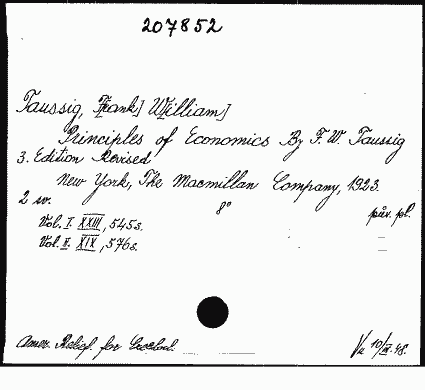 207852
Taussig, F[rank] W[illiam]
Principles of Economics By F. W. Taussig
3. Edition Revised
New York, The Macmillan Company, 1923.
2 sv. 8° pův. pl.
Vol. I. XXIII, 545s. –
Vol. II. XIX, 576s. –
Amer. Relief. for Czechosl. 10/IX.48.